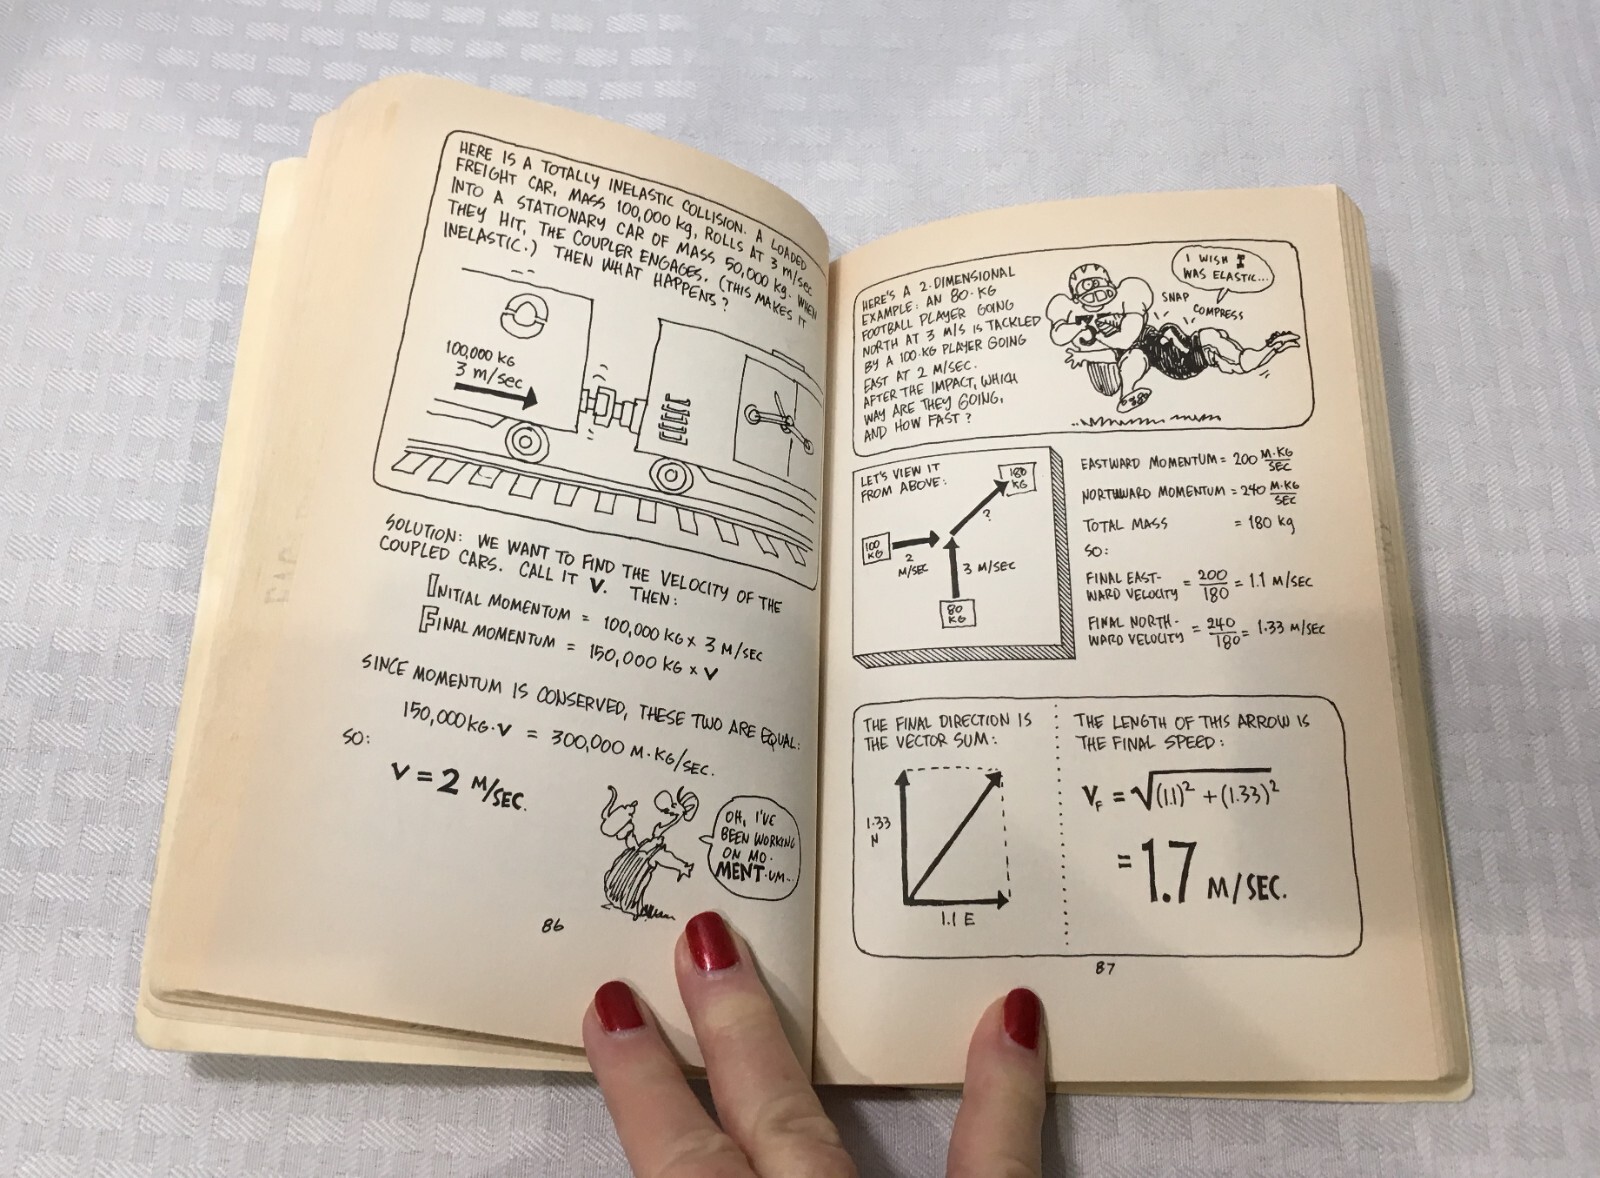 HERE IS A TOTALLY INELASTIC COLLISION. A LOADED
FREIGHT CAR, MASS 100,000 kg, ROLLS AT 3 m/sec
INTO A STATIONARY CAR OF MASS 50,000 kg. WHEN
THEY HIT, THE COUPLER ENGAGES. (THIS MAKES IT
INELASTIC.) THEN WHAT HAPPENS?
100,000 KG
3 m/sec
SOLUTION: WE WANT TO FIND THE VELOCITY OF THE
COUPLED CARS. CALL IT V. THEN:
INITIAL MOMENTUM = 100,000 KG × 3 M/SEC
FINAL MOMENTUM = 150,000 KG × V
SINCE MOMENTUM IS CONSERVED, THESE TWO ARE EQUAL:
150,000 KG·V = 300,000 M·KG/SEC.
SO:
V = 2 M/SEC.
OH, I'VE
BEEN WORKING
ON MO-
MENT-UM--
86
HERE'S A 2-DIMENSIONAL
EXAMPLE: AN 80-KG
FOOTBALL PLAYER GOING
NORTH AT 3 M/S IS TACKLED
BY A 100-KG PLAYER GOING
EAST AT 2 M/SEC.
AFTER THE IMPACT, WHICH
WAY ARE THEY GOING,
AND HOW FAST?
I WISH I
WAS ELASTIC...
SNAP
COMPRESS
LET'S VIEW IT
FROM ABOVE:
180
KG
?
100
KG
2
M/SEC
3 M/SEC
80
KG
EASTWARD MOMENTUM = 200 M·KG/SEC
NORTHWARD MOMENTUM = 240 M·KG/SEC
TOTAL MASS = 180 kg
SO:
FINAL EAST-
WARD VELOCITY = 200/180 = 1.1 M/SEC
FINAL NORTH-
WARD VELOCITY = 240/180 = 1.33 M/SEC
THE FINAL DIRECTION IS
THE VECTOR SUM:
1.33
N
1.1 E
THE LENGTH OF THIS ARROW IS
THE FINAL SPEED:
VF = √(1.1)² + (1.33)²
= 1.7 M/SEC.
87